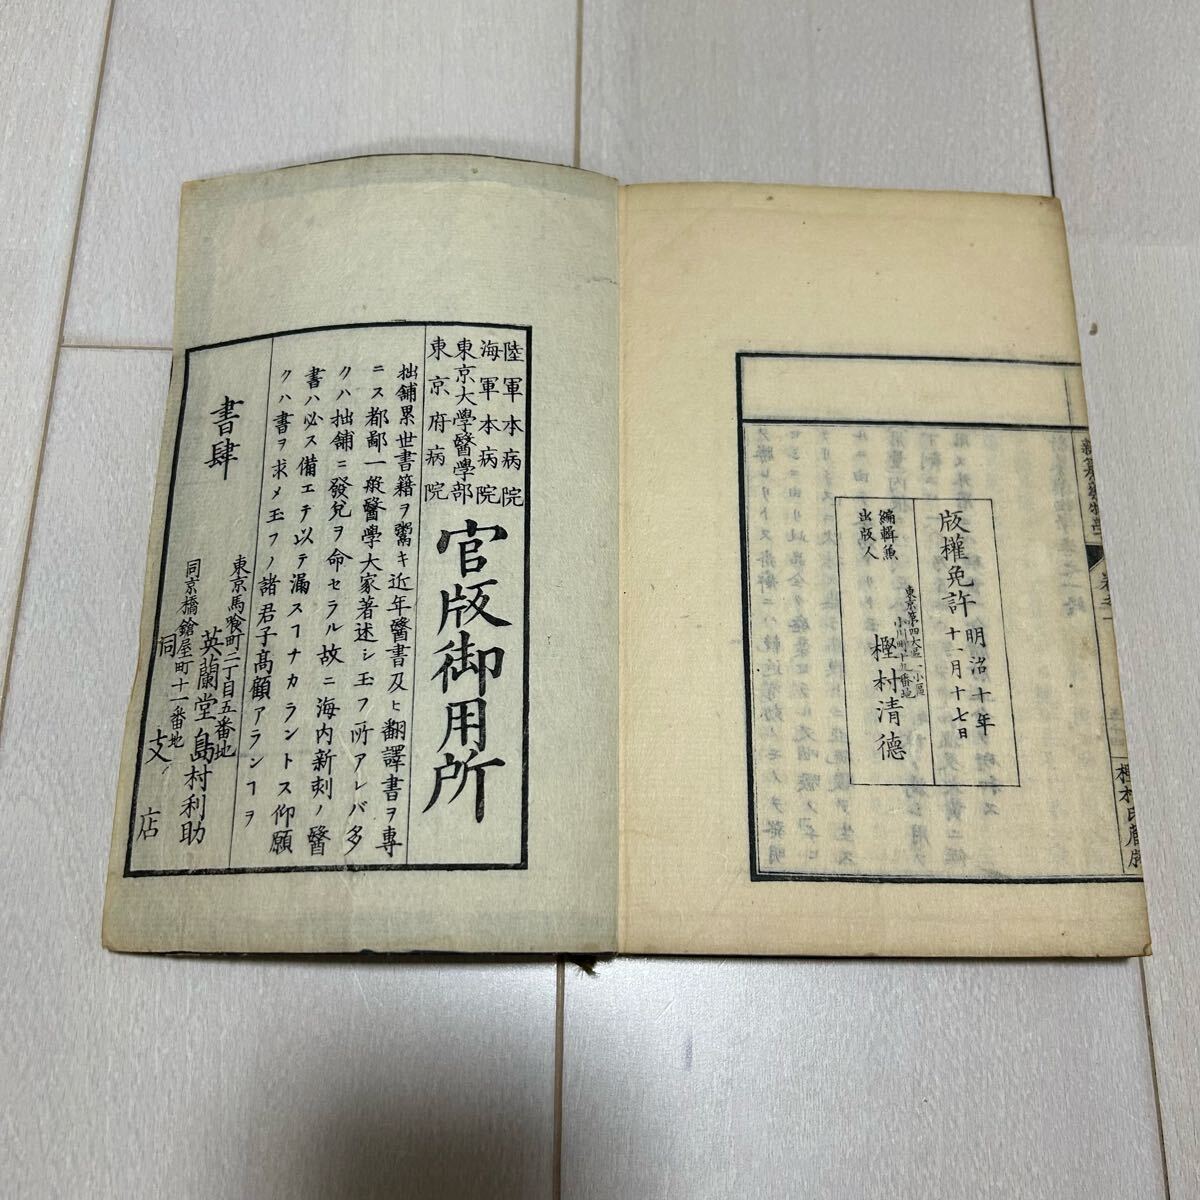 新纂藥物學
樫村氏藏版
版權免許
明治十年
十一月十七日
編輯兼
出版人
東京第四大區一小區
小川町十九番地
樫村清德
陸軍本病院
海軍本病院
東京大學醫學部
東京府病院
官版御用所
拙舖累世書籍ヲ鬻キ近年醫書及ヒ翻譯書ヲ專
ニス都鄙一般醫學大家著述シ玉フ所アレバ多
クハ拙舖ニ發兌ヲ命セラル故ニ海内新刻ノ醫
書ハ必ス備エテ以テ漏スヿナカラントス仰願
クハ書ヲ求メ玉フノ諸君子高顧アランヿヲ
書肆
東京馬喰町二丁目五番地
英蘭堂島村利助
同京橋鎗屋町十一番地
同支店